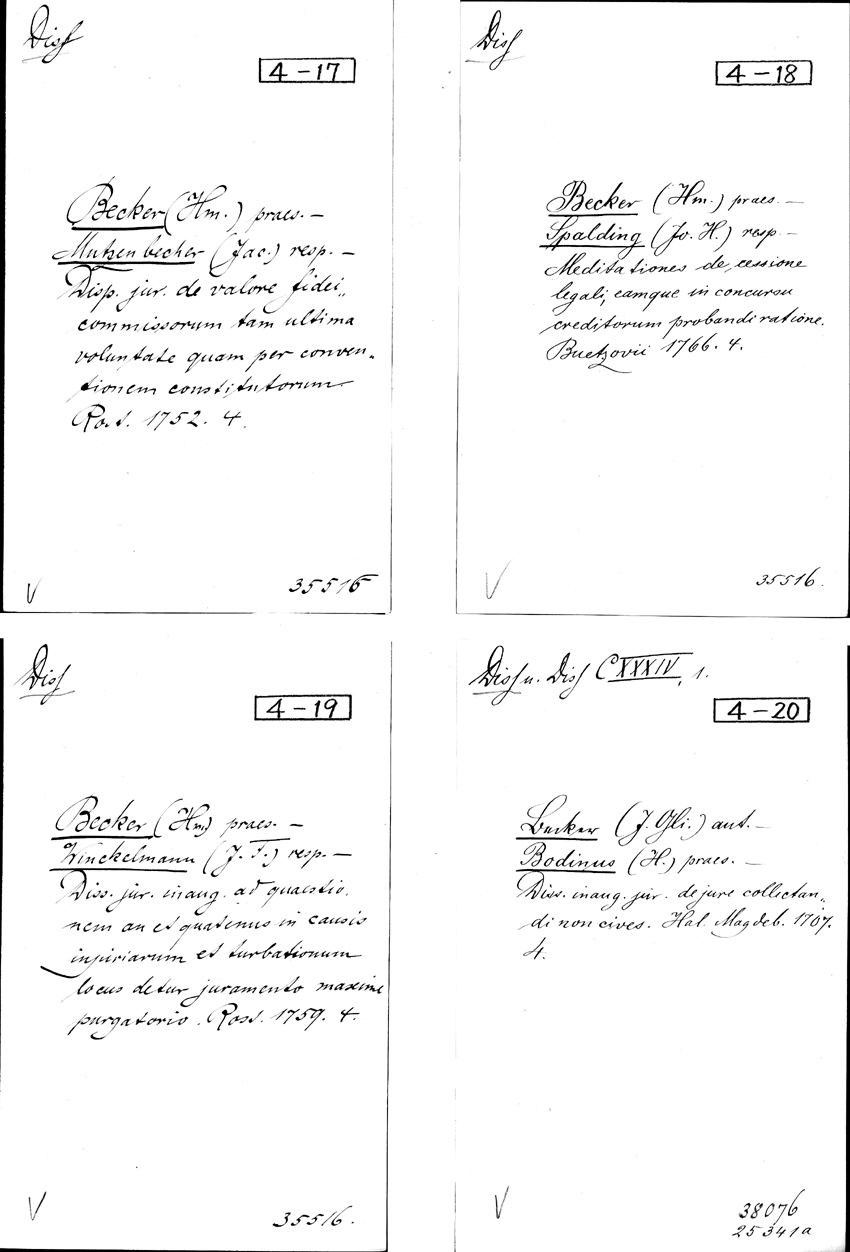 Diss
4-17
Becker (Hm.) praes. —
Mutzenbecher (Jac.) resp. —
Disp. jur. de valore fidei„
commissorum tam ultima
voluntate quam per conven„
tionem constitutorum
Rost. 1752. 4.
V
35516
Diss
4-18
Becker (Hm.) praes. —
Spalding (Jo. H.) resp. —
Meditationes de cessione
legali, eamque in concursu
creditorum probandi ratione.
Buetzovii 1766. 4.
V
35516.
Diss
4-19
Becker (Hm.) praes. —
Winckelmann (J. F.) resp. —
Diss. jur. inaug. ad quaestio„
nem an et quatenus in causis
injuriarum et turbationum
locus detur juramento maxime
purgatorio. Rost. 1759. 4.
V
35516.
Diss u. Diss CXXXIV, 1.
4-20
Becker (J. Gli.) aut. —
Bodinus (H.) praes. —
Diss. inaug. jur. de jure collectan„
di non cives. Hal. Magdeb. 1707.
4.
V
38076
25341a